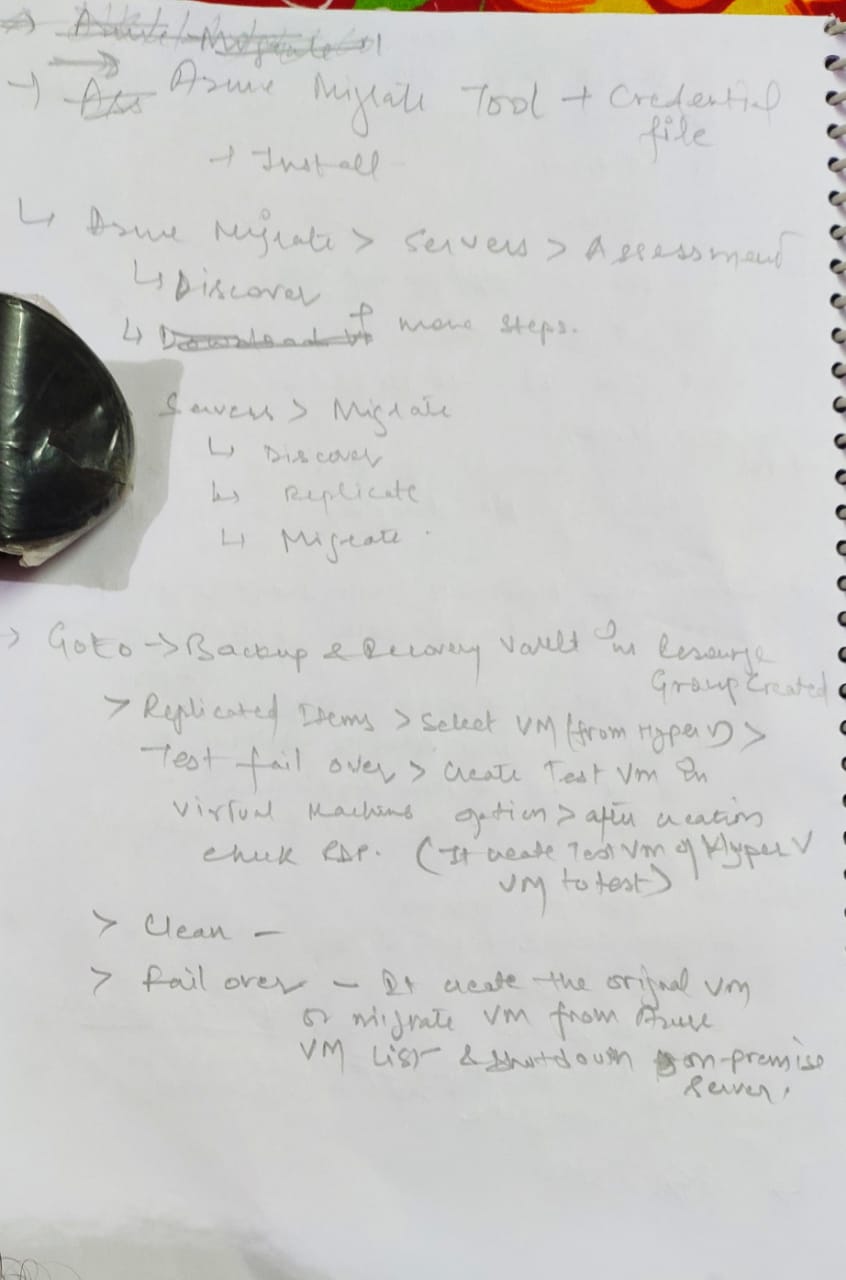 → Azure Migrate Tool + Credential
file
→ Install
↳ Azure Migrate > Servers > Assessment
↳ Discover
↳ + more steps.
Servers > Migrate
↳ Discover
↳ Replicate
↳ Migrate.
→ Goto → Backup & Recovery Vault In Resource
Group Created
> Replicated Items > Select VM (from Hyper V) >
Test fail over > Create Test VM In
Virtual Machine option > after creation
check RDP. (It create Test VM of Hyper V
VM to test)
> Clean -
> Fail over - It create the original VM
or migrate VM from Azure
VM List & Shutdown on-premise
Server.